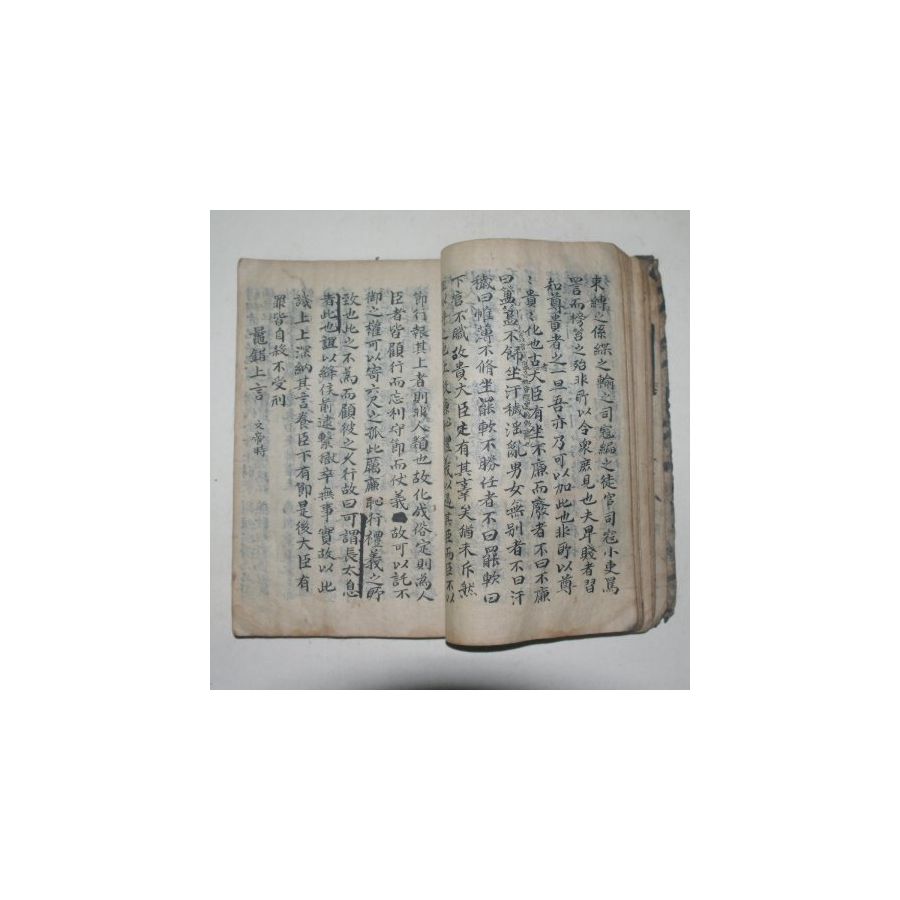 束縛之係緤之輸之司寇編之徒官司寇小吏罵
詈而榜笞之殆非所以令衆庶見也夫卑賤者習
知尊貴者之一旦吾亦乃可以加此也非所以尊
尊貴貴之化也古者大臣有坐不廉而廢者不曰不廉
曰簠簋不飾坐汙穢淫亂男女無別者不曰汙
穢曰帷薄不修坐罷軟不勝任者不曰罷軟曰
下官不職故貴大臣定有其辜矣猶未斥然
節行報其上者則非人類也故化成俗定則為人
臣者皆顧行而忘利守節而仗義故可以託不
御之權可以寄六尺之孤此厲廉恥行禮義之所
致也此之不為而顧彼之久行故曰可謂長太息
者此也誼以絳侯前逮繫獄卒無事實故以此
譏上上深納其言養臣下有節是後大臣有
罪皆自殺不受刑
鼂錯上言 文帝時